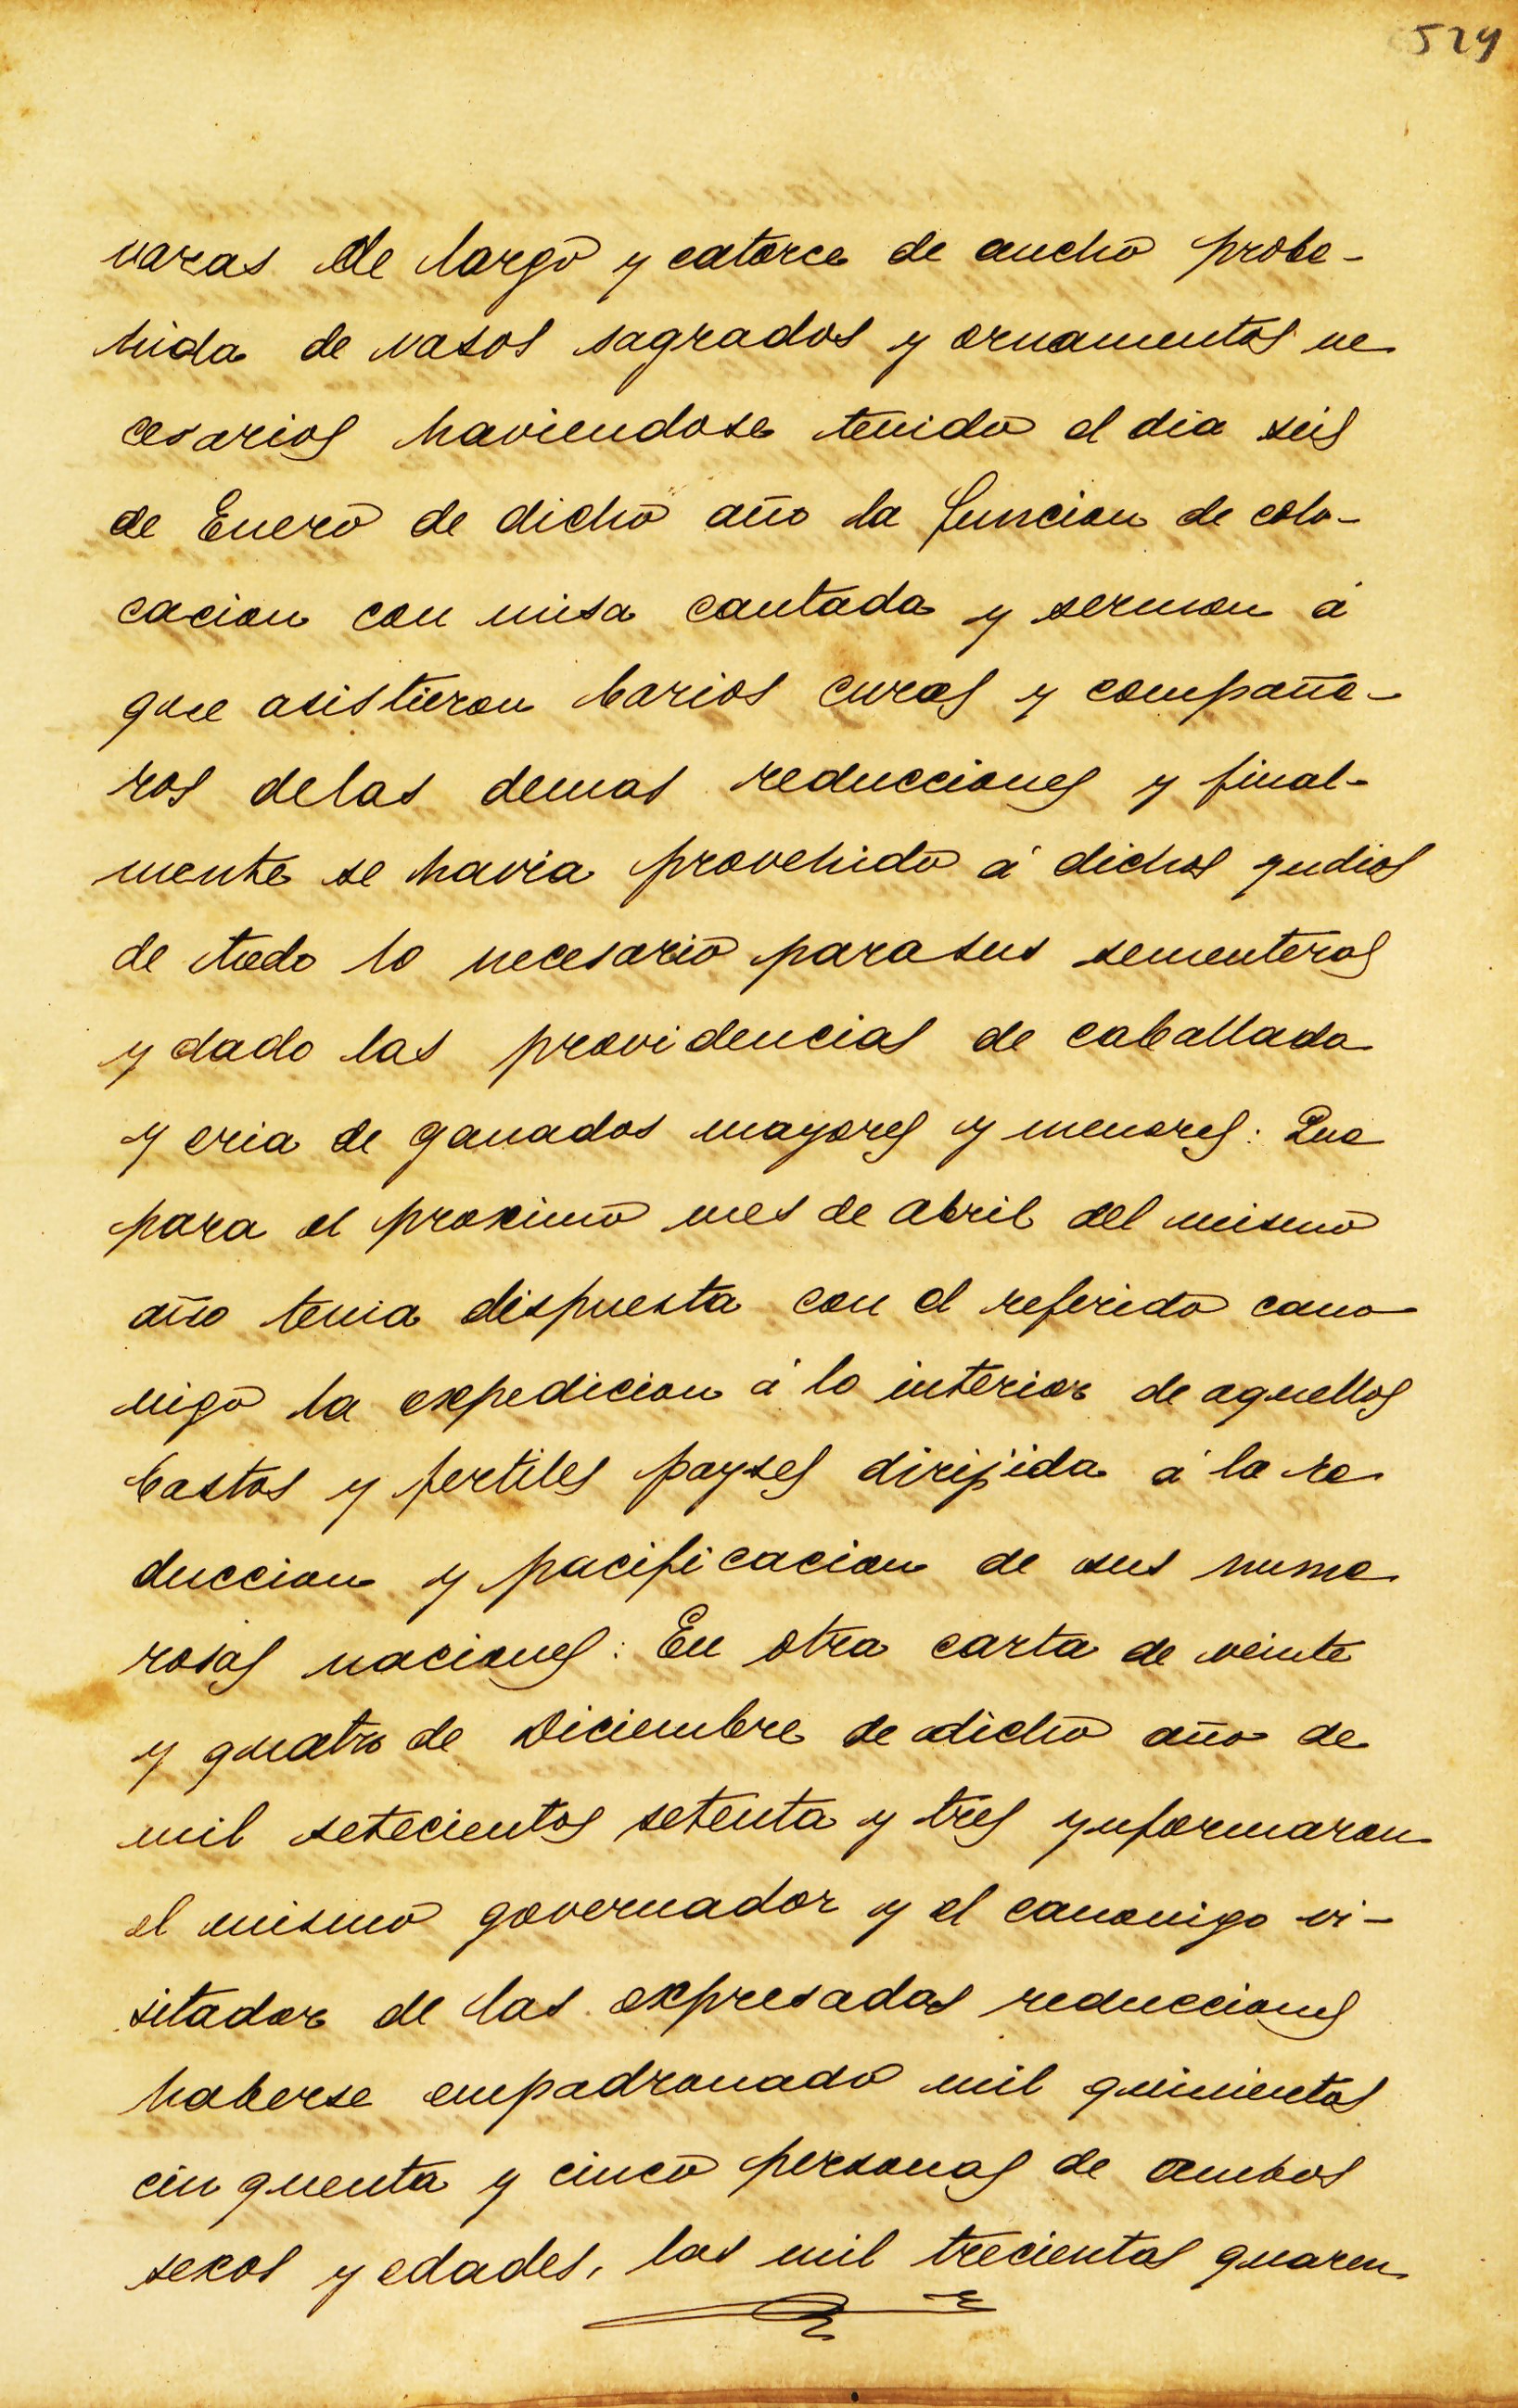 529
varas de largo y catorce de ancho probe-
hida de vasos sagrados y ornamentos ne
cesarios haviendose tenido el dia seis
de Enero de dicho año la funcion de colo-
cacion con misa cantada y sermon á
que asistieron barios curas y compañe-
ros delas demas reducciones y final-
mente se havia provehido á dichos yndios
de todo lo necesario para sus sementeras
y dado las providencias de caballada
y cria de ganados mayores y menores: Que
para el proximo mes de abril del mismo
año tenia dispuesta con el referido cano
nigo la expedicion á lo interior de aquellos
bastos y fertiles payses dirijida á la re
duccion y pacificacion de sus nume
rosas naciones: En otra carta de veinte
y quatro de Diciembre de dicho año de
mil setecientos setenta y tres ynformaron
el mismo governador y el canonigo vi-
sitador de las expresadas reducciones
haberse empadronado mil quinientos
cinquenta y cinco personas de ambos
sexos y edades, las mil trecientas quaren